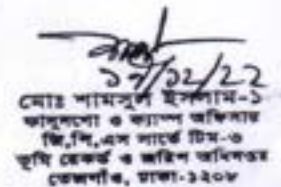 ১৭/১২/২২
মোঃ শামসুল ইসলাম-১
কানুনগো ও ক্যাম্প অফিসার
জি,পি,এস সার্ভে টিম-৩
ভূমি রেকর্ড ও জরিপ অধিদপ্তর
তেজগাঁও, ঢাকা-১২০৮